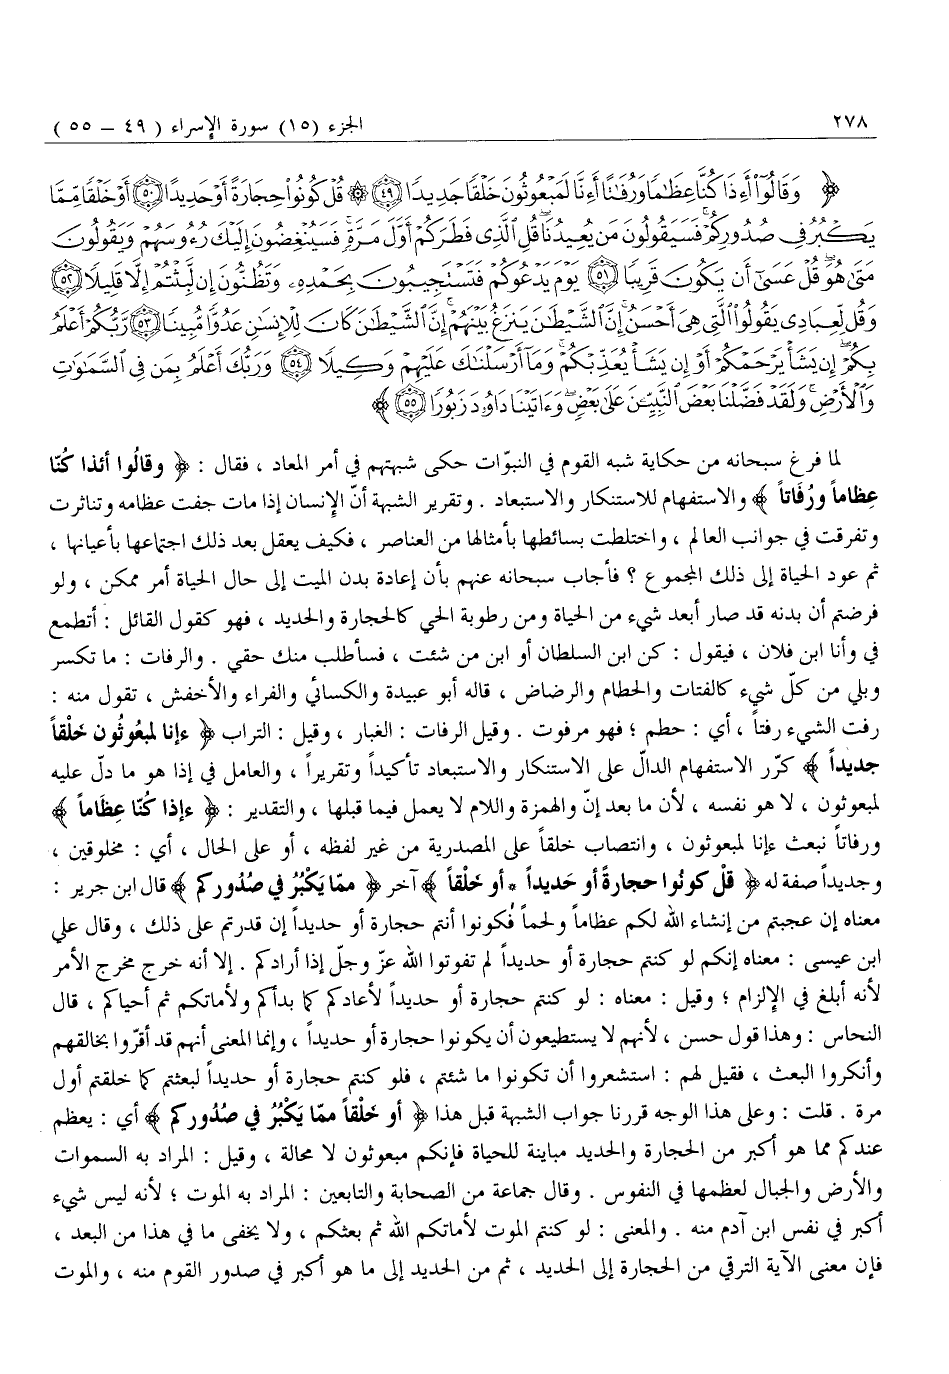 ٢٧٨ الجزء (١٥) سورة الإسراء ( ٤٩ – ٥٥ )
﴿ وَقَالُوٓا۟ أَءِذَا كُنَّا عِظَٰمًا وَرُفَٰتًا أَءِنَّا لَمَبْعُوثُونَ خَلْقًا جَدِيدًا ۝٤٩ ۞ قُلْ كُونُوا۟ حِجَارَةً أَوْ حَدِيدًا ۝٥٠ أَوْ خَلْقًا مِّمَّا
يَكْبُرُ فِى صُدُورِكُمْ ۚ فَسَيَقُولُونَ مَن يُعِيدُنَا ۖ قُلِ ٱلَّذِى فَطَرَكُمْ أَوَّلَ مَرَّةٍ ۚ فَسَيُنْغِضُونَ إِلَيْكَ رُءُوسَهُمْ وَيَقُولُونَ
مَتَىٰ هُوَ ۖ قُلْ عَسَىٰٓ أَن يَكُونَ قَرِيبًا ۝٥١ يَوْمَ يَدْعُوكُمْ فَتَسْتَجِيبُونَ بِحَمْدِهِۦ وَتَظُنُّونَ إِن لَّبِثْتُمْ إِلَّا قَلِيلًا ۝٥٢
وَقُل لِّعِبَادِى يَقُولُوا۟ ٱلَّتِى هِىَ أَحْسَنُ ۚ إِنَّ ٱلشَّيْطَٰنَ يَنزَغُ بَيْنَهُمْ ۚ إِنَّ ٱلشَّيْطَٰنَ كَانَ لِلْإِنسَٰنِ عَدُوًّا مُّبِينًا ۝٥٣ رَّبُّكُمْ أَعْلَمُ
بِكُمْ ۖ إِن يَشَأْ يَرْحَمْكُمْ أَوْ إِن يَشَأْ يُعَذِّبْكُمْ ۚ وَمَآ أَرْسَلْنَٰكَ عَلَيْهِمْ وَكِيلًا ۝٥٤ وَرَبُّكَ أَعْلَمُ بِمَن فِى ٱلسَّمَٰوَٰتِ
وَٱلْأَرْضِ ۗ وَلَقَدْ فَضَّلْنَا بَعْضَ ٱلنَّبِيِّۦنَ عَلَىٰ بَعْضٍ ۖ وَءَاتَيْنَا دَاوُۥدَ زَبُورًا ۝٥٥ ﴾
لما فرغ سبحانه من حكاية شبه القوم في النبوّات حكى شبهتهم في أمر المعاد ، فقال : ﴿ وقالُوا أئذا كُنّا
عِظاماً ورُفَاتاً ﴾ والاستفهام للاستنكار والاستبعاد . وتقرير الشبهة أنّ الإنسان إذا مات جفت عظامه وتناثرت
وتفرقت في جوانب العالم ، واختلطت بسائطها بأمثالها من العناصر ، فكيف يعقل بعد ذلك اجتماعها بأعيانها ،
ثم عود الحياة إلى ذلك المجموع ؟ فأجاب سبحانه عنهم بأن إعادة بدن الميت إلى حال الحياة أمر ممكن ، ولو
فرضتم أن بدنه قد صار أبعد شيء من الحياة ومن رطوبة الحي كالحجارة والحديد ، فهو كقول القائل : أتطمع
في وأنا ابن فلان ، فيقول : كن ابن السلطان أو ابن من شئت ، فسأطلب منك حقي . والرفات : ما تكسر
وبلي من كلّ شيء كالفتات والحطام والرضاض ، قاله أبو عبيدة والكسائي والفراء والأخفش ، تقول منه :
رفت الشيء رفتاً ، أي : حطم ؛ فهو مرفوت . وقيل الرفات : الغبار ، وقيل : التراب ﴿ ءإنا لمبعُوثُون خَلْقاً
جديداً ﴾ كرّر الاستفهام الدالّ على الاستنكار والاستبعاد تأكيداً وتقريراً ، والعامل في إذا هو ما دلّ عليه
لمبعوثون ، لا هو نفسه ، لأن ما بعد إنّ والهمزة واللام لا يعمل فيما قبلها ، والتقدير : ﴿ ءإذا كُنّا عِظَاماً ﴾
ورفاتاً نبعث ءإنا لمبعوثون ، وانتصاب خلقاً على المصدرية من غير لفظه ، أو على الحال ، أي : مخلوقين ،
وجديداً صفة له ﴿ قُلْ كونُوا حجارةً أو حَديداً * أو خَلْقاً ﴾ آخر ﴿ ممّا يَكْبُرُ في صُدُوركم ﴾ قال ابن جرير :
معناه إن عجبتم من إنشاء الله لكم عظاماً ولحماً فكونوا أنتم حجارة أو حديداً إن قدرتم على ذلك ، وقال علي
ابن عيسى : معناه إنكم لو كنتم حجارة أو حديداً لم تفوتوا الله عزّ وجلّ إذا أرادكم . إلا أنه خرج مخرج الأمر
لأنه أبلغ في الإلزام ؛ وقيل : معناه : لو كنتم حجارة أو حديداً لأعادكم كما بدأكم ولأماتكم ثم أحياكم ، قال
النحاس : وهذا قول حسن ، لأنهم لا يستطيعون أن يكونوا حجارة أو حديداً ، وإنما المعنى أنهم قد أقرّوا بخالقهم
وأنكروا البعث ، فقيل لهم : استشعروا أن تكونوا ما شئتم ، فلو كنتم حجارة أو حديداً لبعثتم كما خلقتم أول
مرة . قلت : وعلى هذا الوجه قررنا جواب الشبهة قبل هذا ﴿ أو خَلْقاً ممّا يَكْبُرُ في صُدُوركم ﴾ أي : يعظم
عندكم مما هو أكبر من الحجارة والحديد مباينة للحياة فإنكم مبعوثون لا محالة ، وقيل : المراد به السموات
والأرض والجبال لعظمها في النفوس . وقال جماعة من الصحابة والتابعين : المراد به الموت ؛ لأنه ليس شيء
أكبر في نفس ابن آدم منه . والمعنى : لو كنتم الموت لأماتكم الله ثم بعثكم ، ولا يخفى ما في هذا من البعد ،
فإن معنى الآية الترقي من الحجارة إلى الحديد ، ثم من الحديد إلى ما هو أكبر في صدور القوم منه ، والموت